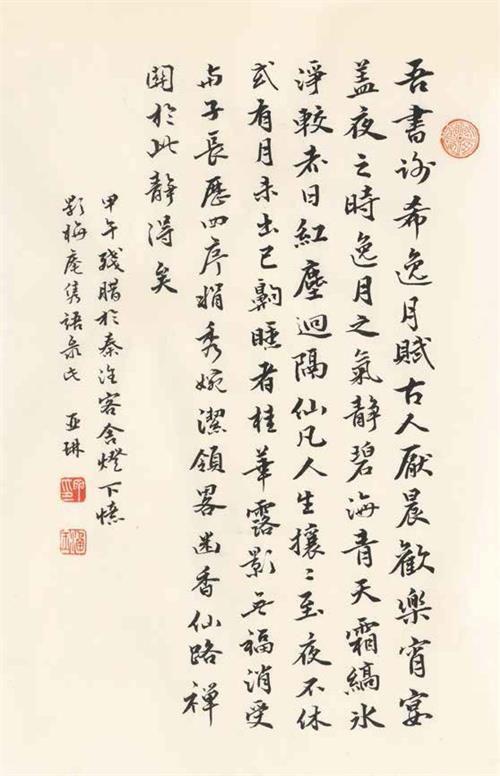 吾書谢希逸月賦古人厭晨歡樂宵宴
盖夜之時逸月之氣静碧海青天霜縞冰
淨較赤日紅塵迥隔仙凡人生攘〻至夜不休
或有月未出已齁睡者桂華露影无福消受
与子長歷四序娟秀浣潔領畧幽香仙路禅
関於此静得矣
甲午殘腊於秦淮客舍燈下憶
影梅庵隽語录此 亚琳